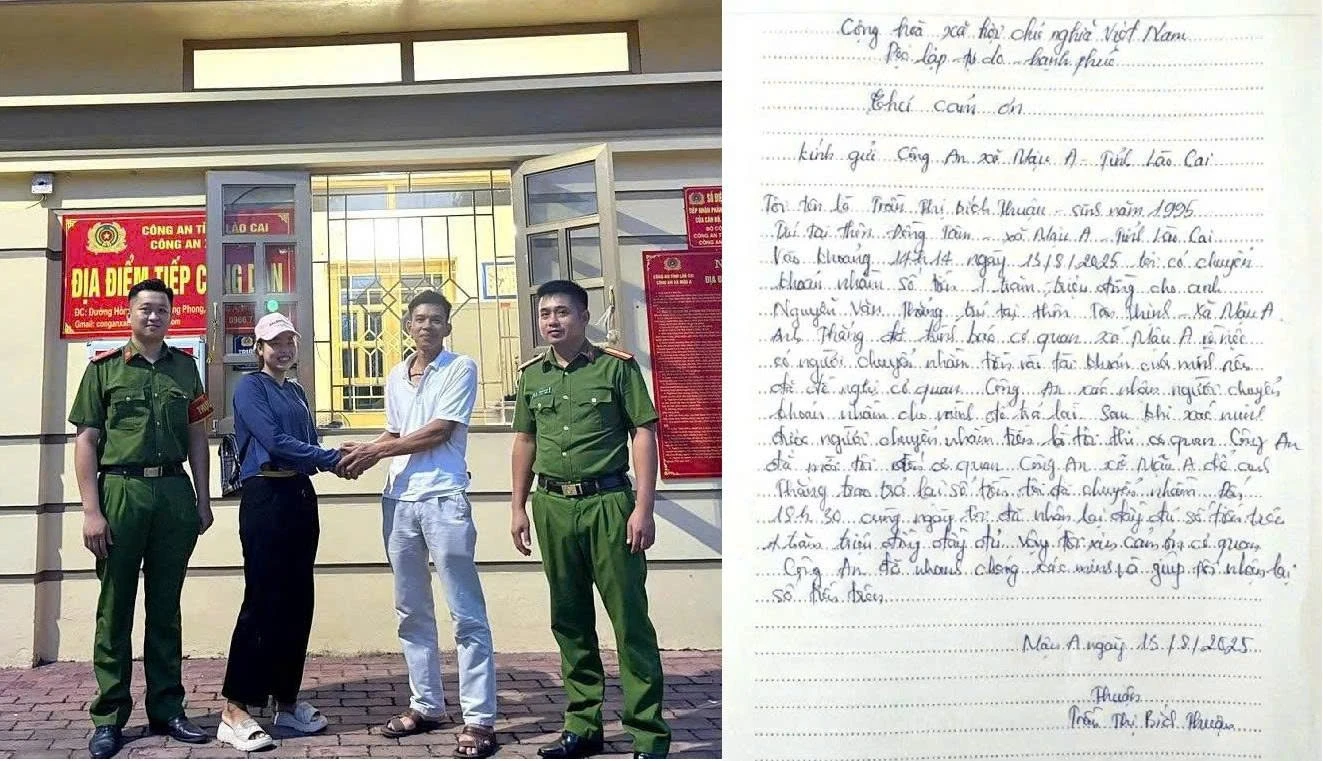 CÔNG AN TỈNH LÀO CAI
CÔNG AN X
ĐỊA ĐIỂM TIẾP CÔNG DÂN
ĐC: Đường Hồng Phong,
Gmail: conganxa .com
0966.7
SỐ ĐIỆ
TIẾP NHẬN PHẢN
CỦA CÁN BỘ,
BỘ CÔ
CÔNG AN T
CÔNG AN
CÔNG AN TỈNH LÀO CAI
CÔNG AN XÃ MẬU A
N
ĐỊA Đ
Cộng hoà xã hội chủ nghĩa Việt Nam
Độc lập - tự do - hạnh phúc
Thư cảm ơn
Kính gửi Công An xã Mậu A - Tỉnh Lào Cai
Tôi tên là Trần Thị Bích Thuận - sinh năm 1995
Trú tại thôn Đồng Tâm - xã Mậu A - Tỉnh Lào Cai
Vào khoảng 14h14 ngày 15/8/2025 tôi có chuyển
khoản nhầm số tiền 1 trăm triệu đồng cho anh
Nguyễn Văn Thắng trú tại thôn Tân Thịnh - Xã Mậu A
Anh Thắng đã trình báo cơ quan xã Mậu A về việc
có người chuyển nhầm tiền vào tài khoản của mình nên
đã đề nghị cơ quan Công An xác nhận người chuyển
khoản nhầm cho mình để trả lại. Sau khi xác minh
được người chuyển nhầm tiền là tôi thì cơ quan Công An
đã mời tôi đến cơ quan Công An xã Mậu A để anh
Thắng trao trả lại số tiền tôi đã chuyển nhầm. Đến
15h30 cùng ngày tôi đã nhận lại đầy đủ số tiền trên
1 trăm triệu đồng đầy đủ. Vậy tôi xin cảm ơn cơ quan
Công An đã nhanh chóng xác minh và giúp tôi nhận lại
số tiền trên.
Mậu A ngày 15/8/2025
Thuận
Trần Thị Bích Thuận